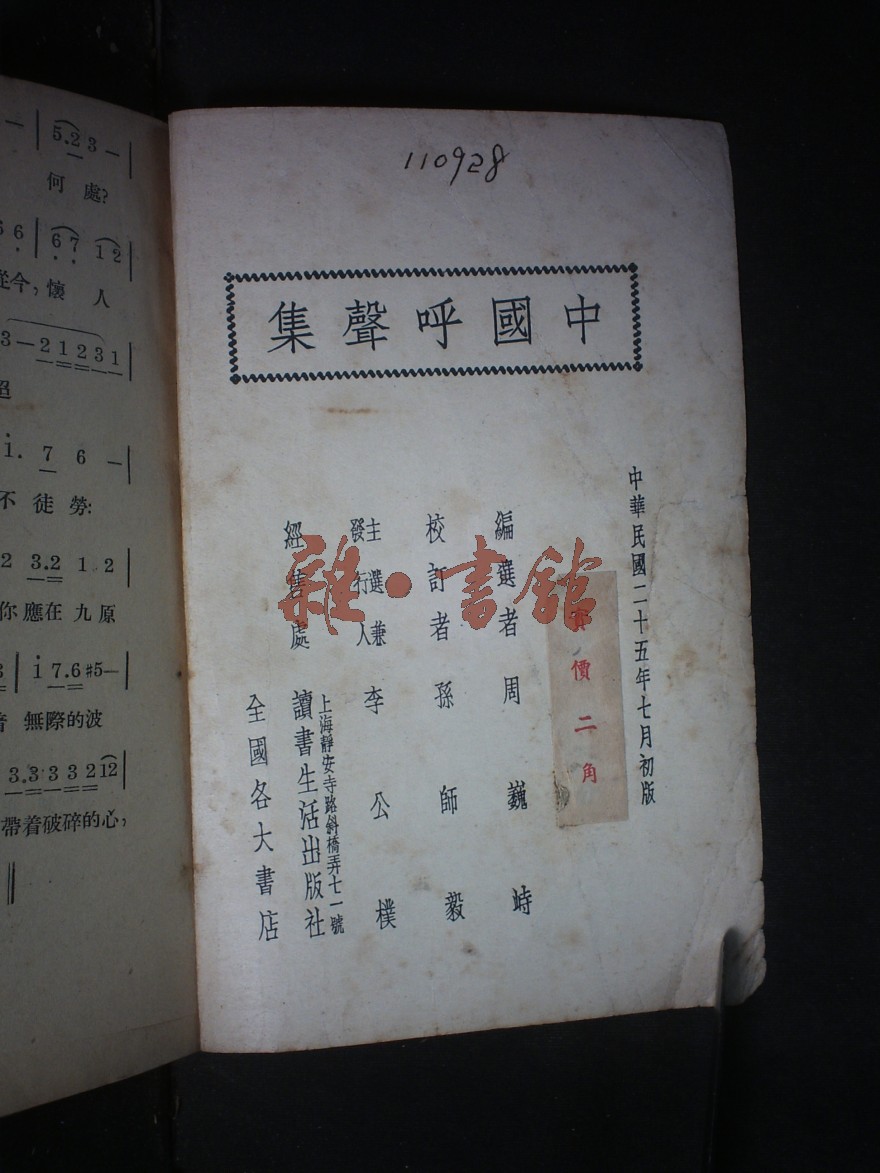 110928
中國呼聲集
中華民國二十五年七月初版
實價二角
編選者 周巍峙
校訂者 孫師毅
主選兼發行人 李公樸
經售處 讀書生活出版社
上海靜安寺路斜橋弄七一號
全國各大書店
雜·書館
5.2 3 —
何處?
6 6 | 6 7 1 2
從今,懷人
3 — 2 1 2 3 1
i. 7 6 —
不徒勞:
2 3.2 1 2
你應在九原
3 | i 7.6 #5—
無際的波
3.3 3 3 2 12
帶着破碎的心,